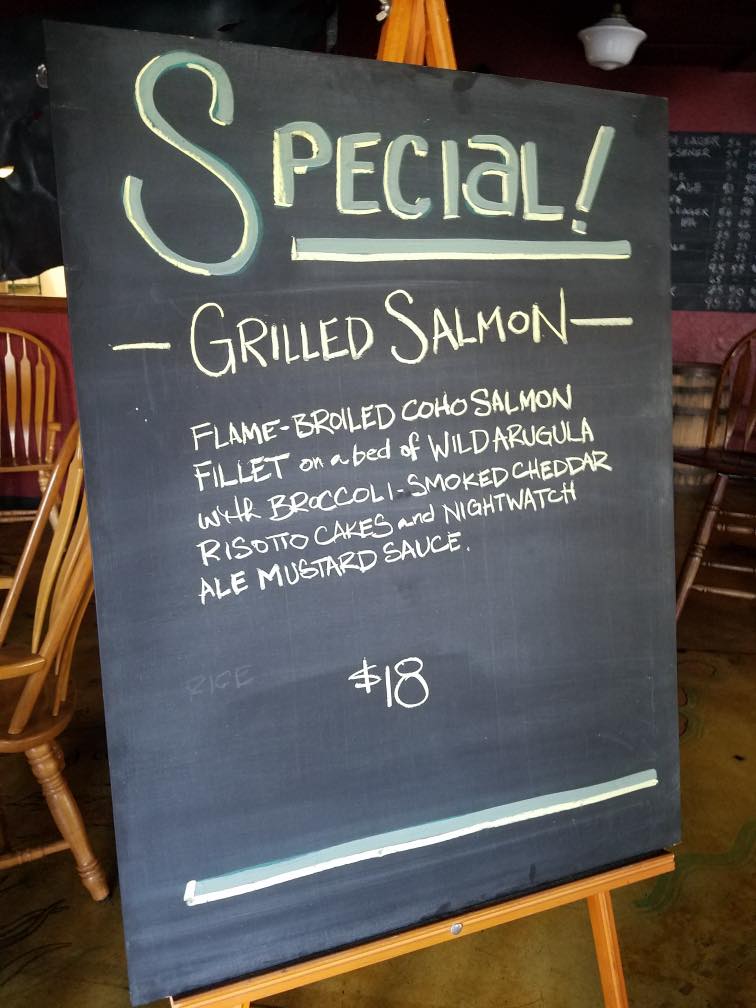 SPECIAL!
- GRILLED SALMON -
FLAME-BROILED COHO SALMON
FILLET on a bed of WILD ARUGULA
with BROCCOLI-SMOKED CHEDDAR
RISOTTO CAKES and NIGHTWATCH
ALE MUSTARD SAUCE.
RICE
$18
LAGER
ALE
LAGER